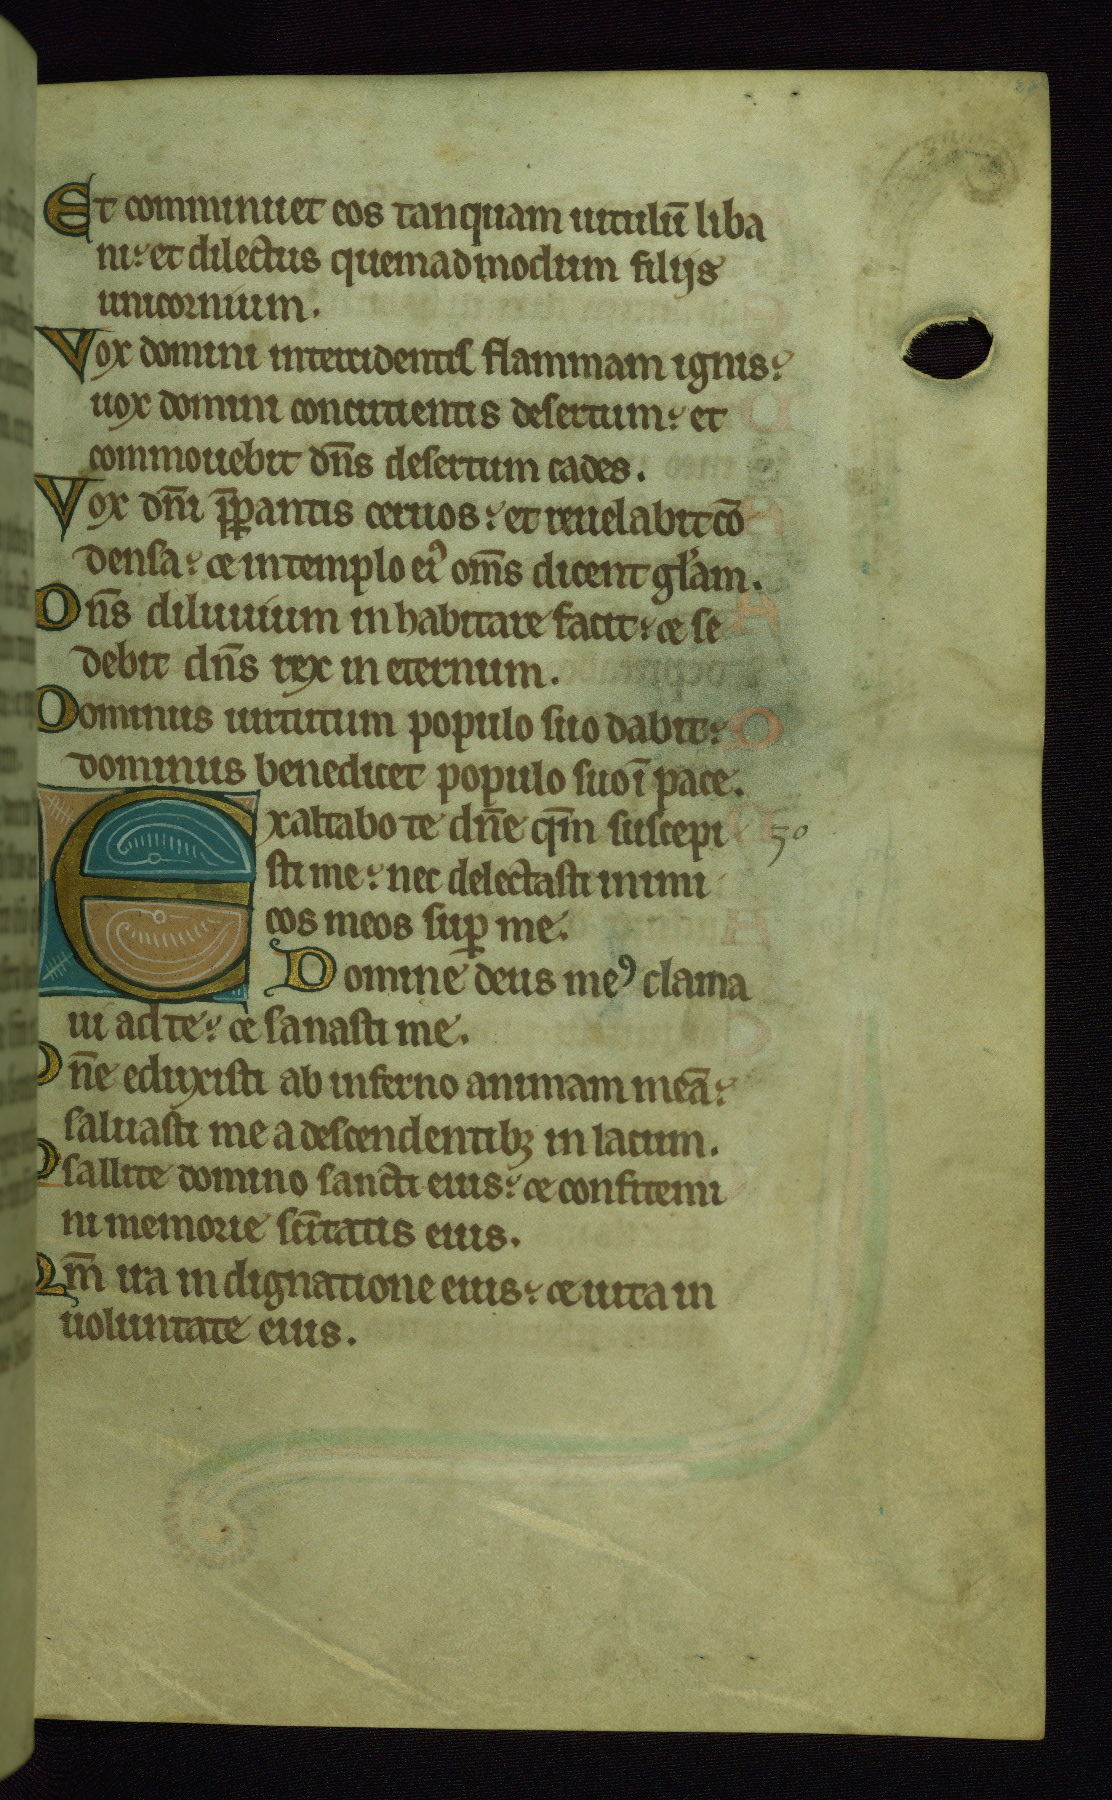 Et comminuet eos tanquam uitulū liba
ni: et dilectus quemadmodum filijs
unicornium.
Vox domini intercidentis flammam ignis:
uox domini concutientis desertum: et
commouebit dn̄s desertum cades.
Vox dn̄i p̄parantis ceruos: et reuelabit cō
densa: et in templo eiꝰ om̄s dicent gl̄am.
Dn̄s diluuium inhabitare facit: et se
debit dn̄s rex in eternum.
Dominus uirtutum populo suo dabit:
dominus benedicet populo suo ī pace.
Exaltabo te dn̄e qm̄ suscepi 30
sti me: nec delectasti inimi
cos meos suꝑ me.
Domine deus meꝰ clama
ui ad te: et sanasti me.
Dn̄e eduxisti ab inferno animam meā:
saluasti me a descendentibꝫ in lacum.
Psallite domino sancti eius: et confitemi
ni memorie sc̄itatis eius.
Qm̄ ira in dignatione eius: et uita in
uoluntate eius.